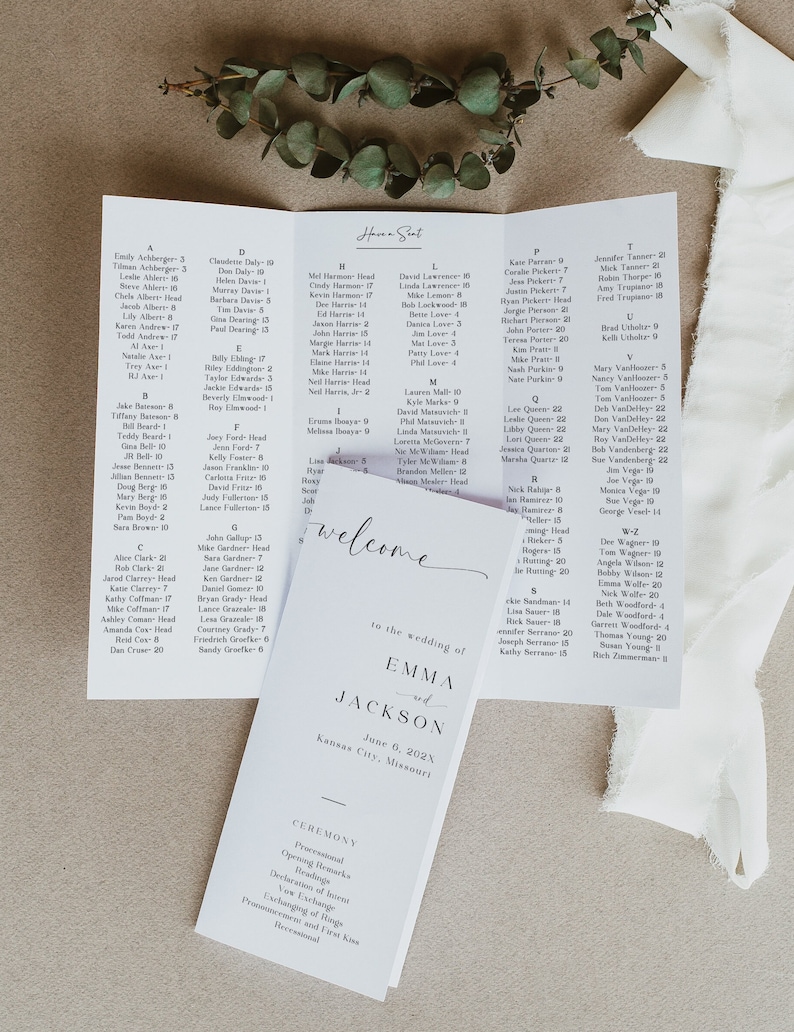 Have a Seat
A
Emily Achberger- 3
Tilman Achberger- 3
Leslie Ahlert- 16
Steve Ahlert- 16
Chels Albert- Head
Jacob Albert- 8
Lily Albert- 8
Karen Andrew- 17
Todd Andrew- 17
Al Axe- 1
Natalie Axe- 1
Trey Axe- 1
RJ Axe- 1
B
Jake Bateson- 8
Tiffany Bateson- 8
Bill Beard- 1
Teddy Beard- 1
Gina Bell- 10
JR Bell- 10
Jesse Bennett- 13
Jillian Bennett- 13
Doug Berg- 16
Mary Berg- 16
Kevin Boyd- 2
Pam Boyd- 2
Sara Brown- 10
C
Alice Clark- 21
Rob Clark- 21
Jarod Clarrey- Head
Katie Clarrey- 7
Kathy Coffman- 17
Mike Coffman- 17
Ashley Coman- Head
Amanda Cox- Head
Reid Cox- 8
Dan Cruse- 20
D
Claudette Daly- 19
Don Daly- 19
Helen Davis- 1
Murray Davis- 1
Barbara Davis- 5
Tim Davis- 5
Gina Dearing- 13
Paul Dearing- 13
E
Billy Ebling- 17
Riley Eddington- 2
Taylor Edwards- 3
Jackie Edwards- 15
Beverly Elmwood- 1
Roy Elmwood- 1
F
Joey Ford- Head
Jenn Ford- 7
Kelly Foster- 8
Jason Franklin- 10
Carlotta Fritz- 16
David Fritz- 16
Judy Fullerton- 15
Lance Fullerton- 15
G
John Gallup- 13
Mike Gardner- Head
Sara Gardner- 7
Jane Gardner- 12
Ken Gardner- 12
Daniel Gomez- 10
Bryan Grady- Head
Lance Grazeale- 18
Lesa Grazeale- 18
Courtney Grady- 7
Friedrich Groefke- 6
Sandy Groefke- 6
H
Mel Harmon- Head
Cindy Harmon- 17
Kevin Harmon- 17
Dee Harris- 14
Ed Harris- 14
Jaxon Harris- 2
John Harris- 15
Margie Harris- 14
Mark Harris- 14
Elaine Harris- 14
Mike Harris- 14
Neil Harris- Head
Neil Harris, Jr- 2
I
Erums Iboaya- 9
Melissa Iboaya- 9
J
Lisa Jackson- 5
Ryan
Roxy
Scot
Joh
L
David Lawrence- 16
Linda Lawrence- 16
Mike Lemon- 8
Bob Lockwood- 18
Bette Love- 4
Danica Love- 3
Jim Love- 4
Mat Love- 3
Patty Love- 4
Phil Love- 4
M
Lauren Mall- 10
Kyle Marks- 9
David Matsuvich- 11
Phil Matsuvich- 11
Linda Matsuvich- 11
Loretta McGovern- 7
Nic McWilliam- Head
Tyler McWilliam- 8
Brandon Mellen- 12
Alison Mesler- Head
Mosler- 4
P
Kate Parran- 9
Coralie Pickert- 7
Jess Pickert- 7
Justin Pickert- 7
Ryan Pickert- Head
Jorgie Pierson- 21
Richart Pierson- 21
John Porter- 20
Teresa Porter- 20
Kim Pratt- 11
Mike Pratt- 11
Nash Purkin- 9
Nate Purkin- 9
Q
Lee Queen- 22
Leslie Queen- 22
Libby Queen- 22
Lori Queen- 22
Jessica Quarton- 21
Marsha Quartz- 12
R
Nick Rahija- 8
Ian Ramirez- 10
Ramirez- 10
Reller- 15
Fleming- Head
Rieker- 5
Rogers- 15
Rutting- 20
Rutting- 20
S
Jackie Sandman- 14
Lisa Sauer- 18
Rick Sauer- 18
Jennifer Serrano- 20
Joseph Serrano- 15
Kathy Serrano- 15
T
Jennifer Tanner- 21
Mick Tanner- 21
Robin Thorpe- 16
Amy Trupiano- 18
Fred Trupiano- 18
U
Brad Utholtz- 9
Kelli Utholtz- 9
V
Mary VanHoozer- 5
Nancy VanHoozer- 5
Tom VanHoozer- 5
Deb VanDeHey- 22
Don VanDeHey- 22
Mary VanDeHey- 22
Roy VanDeHey- 22
Bob Vandenberg- 22
Sue Vandenberg- 22
Jim Vega- 19
Joe Vega- 19
Monica Vega- 19
Sue Vega- 19
George Vesel- 14
W-Z
Dee Wagner- 19
Tom Wagner- 19
Angela Wilson- 12
Bobby Wilson- 12
Emma Wolfe- 20
Nick Wolfe- 20
Beth Woodford- 4
Dale Woodford- 4
Garrett Woodford- 4
Thomas Young- 20
Susan Young- 11
Rich Zimmerman- 11
welcome
to the wedding of
EMMA
and
JACKSON
June 6, 202X
Kansas City, Missouri
CEREMONY
Processional
Opening Remarks
Readings
Declaration of Intent
Vow Exchange
Exchanging of Rings
Pronouncement and First Kiss
Recessional